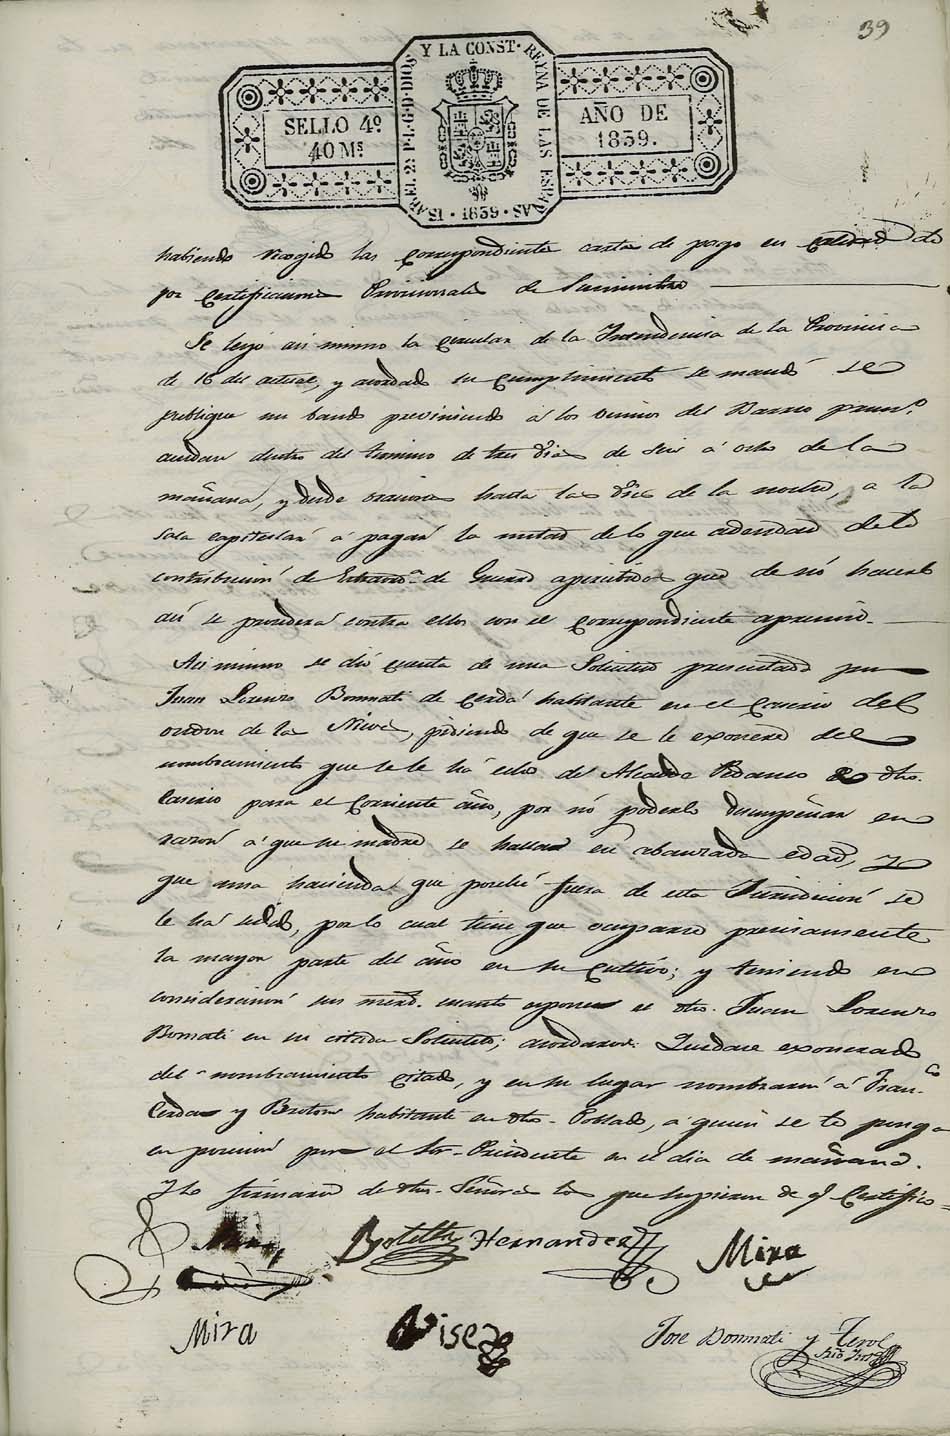 39
ISABEL 2ª P. L. G. D. DIOS Y LA CONST. REYNA DE LAS ESPAÑAS · 1839 ·
SELLO 4º
40 Ms
AÑO DE
1839.
habiendo recogido las correspondiente carta de pago en calidad de
por Certificaciones Provicionales de Suministro
Se leyó asi mismo la circular de la Intendencia de la Provincia
de 16 del actual, y acordado su cumplimiento se mandó se
publique un bando previniendo á los vecinos del Barrio
acudan dentro del termino de tres dias de seis á ocho de la
mañana, y desde oraciones hasta las diez de la noche, a la
Sala capitular á pagar la mitad de lo que adeudan de la
contribucion de Extraord.ª de Guerra apercibidos que de nó hacerlo
asi se procederá contra ellos con el correspondiente apremio.
Asi mismo se dió cuenta de una Solicitud presentada por
Juan Lorenzo Bonmati de Cerdá habitante en el Caserio del
ondon de las Nieves, pidiendo de que se le exonere del
nombramiento que se le há echo del Alcalde Pedaneo de dho.
Caserio para el corriente año, por nó poderlo desempeñar en
razon á que su madre se halla en abanzada edad, y
que una hacienda que posehé fuera de esta Jurisdicion se
le há , por lo cual tiene que ocuparse precisamente
la mayor parte del año en su cultivo; y teniendo en
consideracion sus merd. cuanto expone el dho. Juan Lorenzo
Bonmati en su citada Solicitud; acordaron: Quedase exonerado
del nombramiento citado, y en su lugar nombraron á Fran.co
Cerdá y Broton habitante en dho. Poblado, á quien se le ponga
en posesion por el Sor. Presidente en el dia de mañana.
Y lo firmaron de dhos. Señores los que supieron de q.e Certifico =
Botella Hernandez Mira
Mira
José Bonmati y Terol